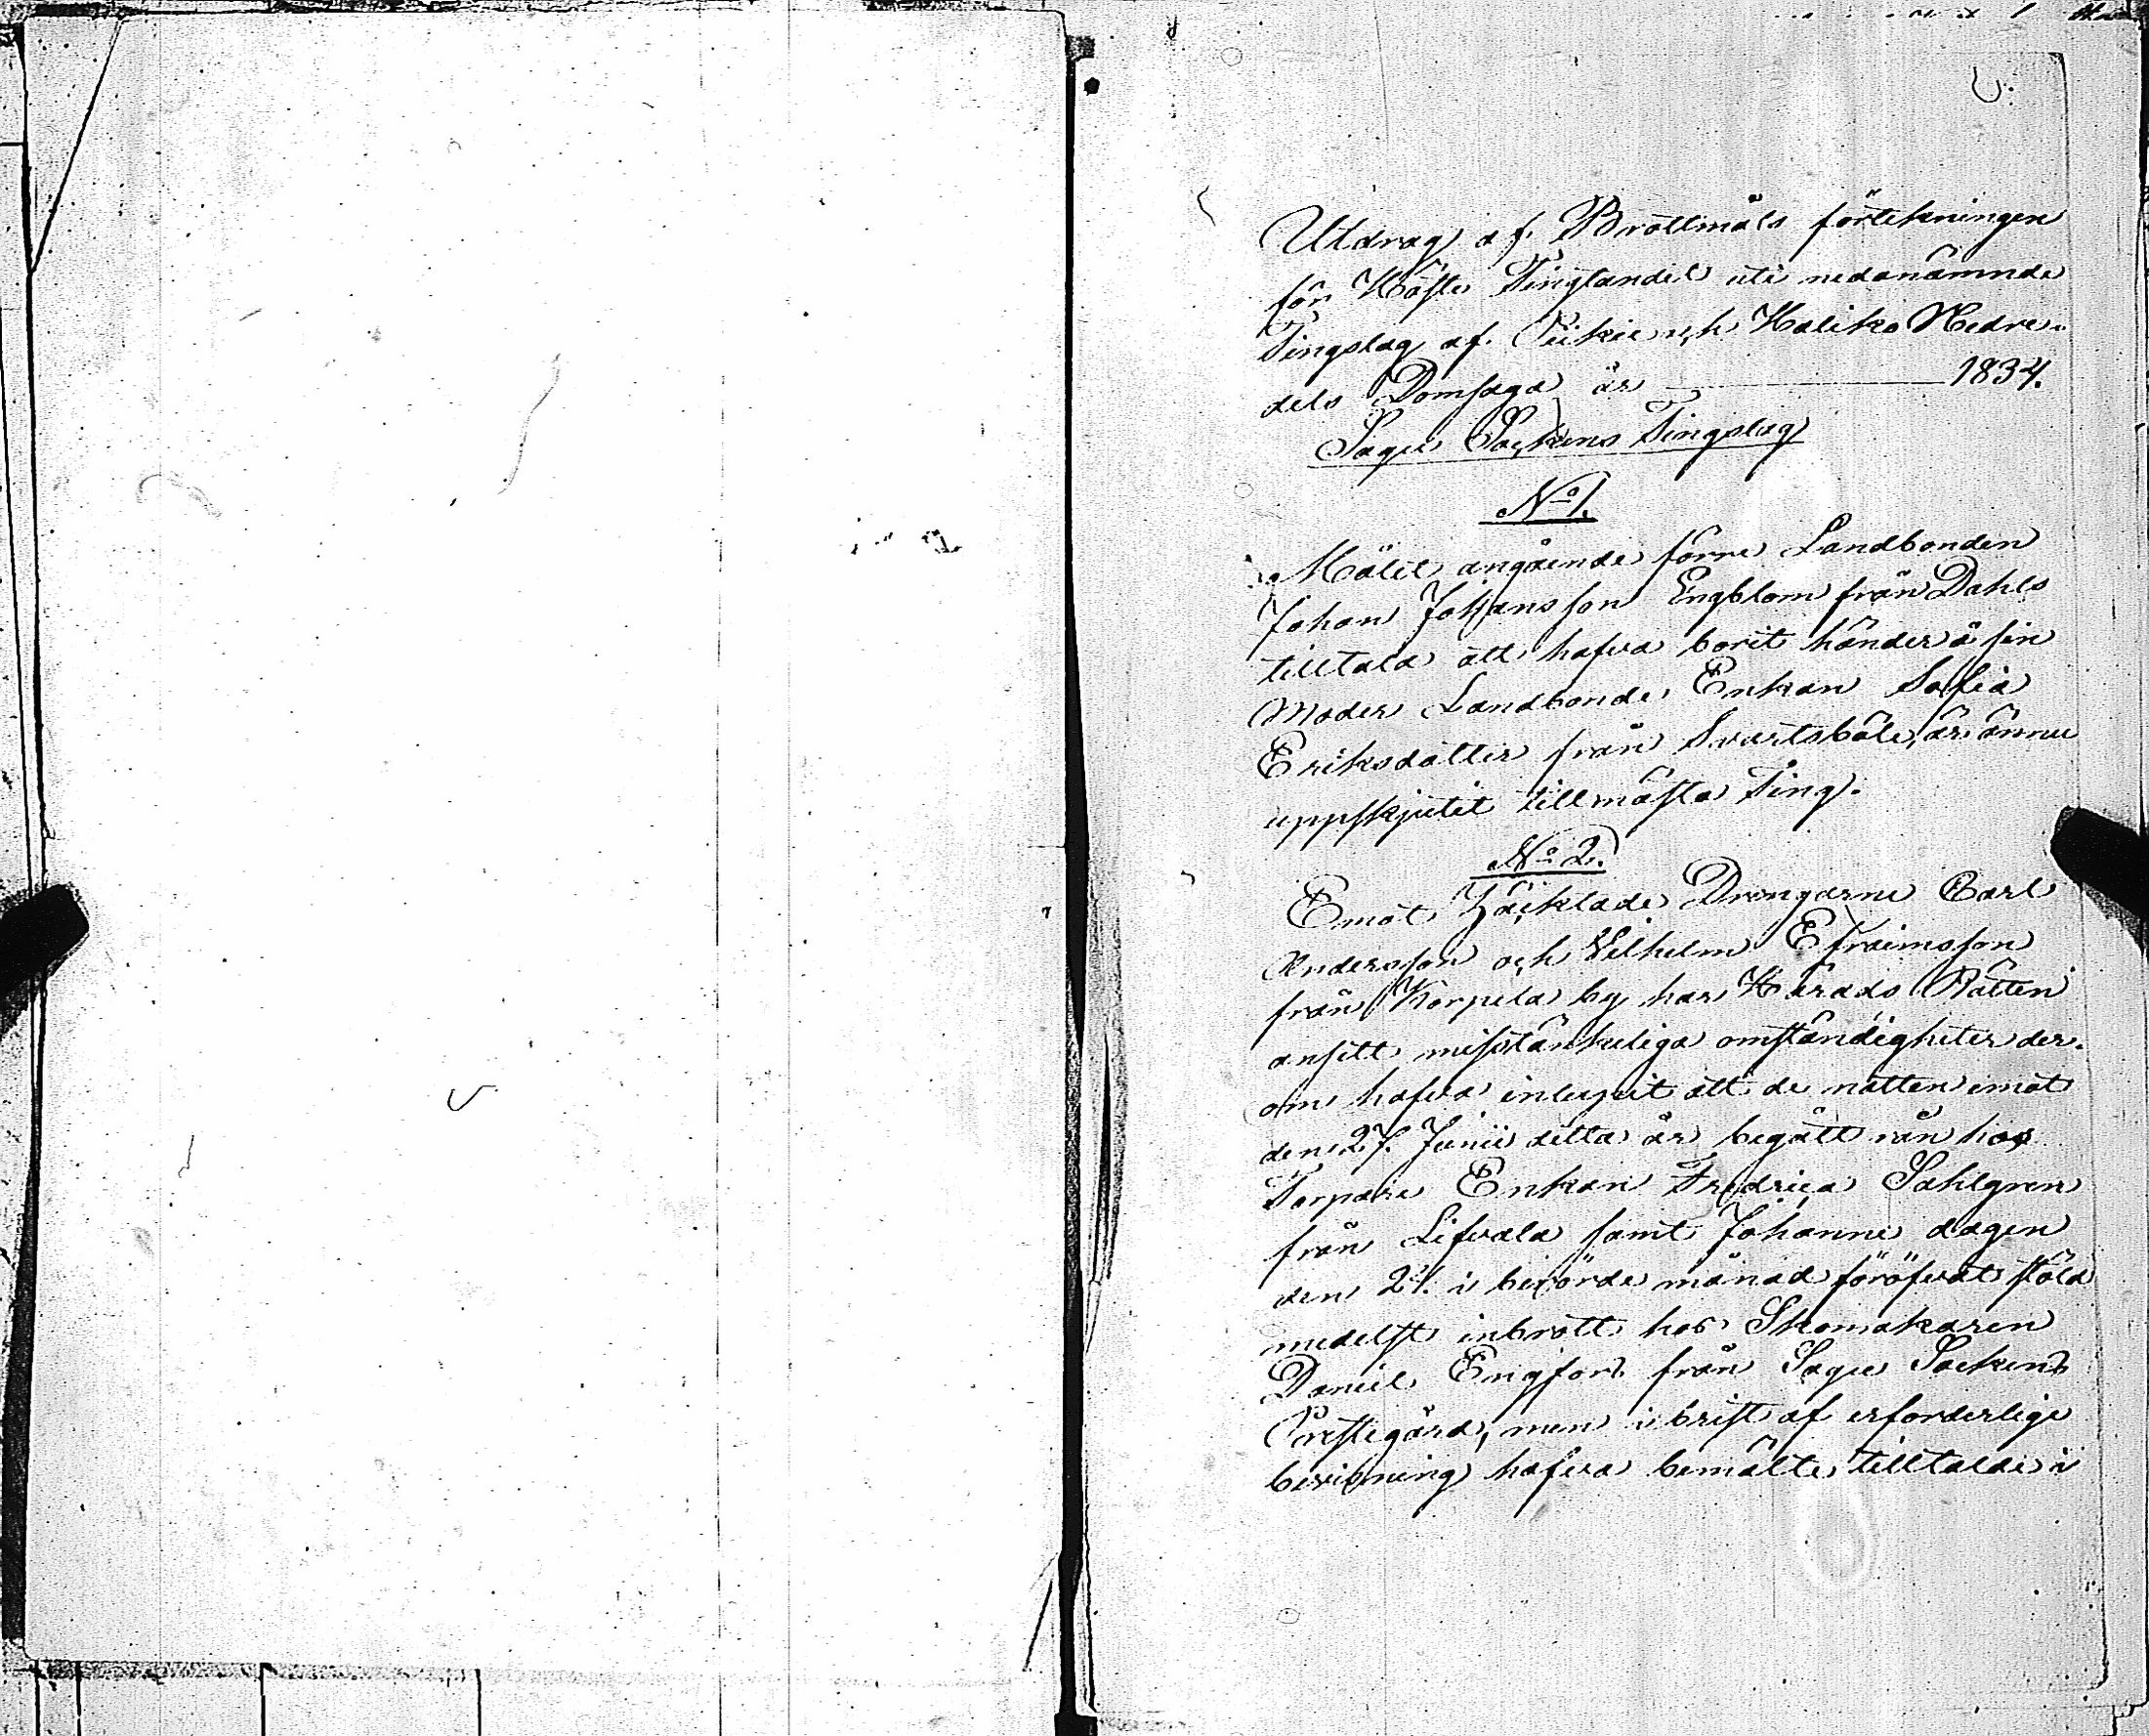 Utdrag af Brottmåls förtekningen
för Höste Tinglandet uti nedanämnde
Tingslag af Pikie och Haliko Nedre
dels Domsaga år 1834.
Sagu Sockens Tingslag
No 1.
Målet angående förre Landbonden
Johan Johansson Engblom från Dahls
tilltald att hafva borit händer å sin
Moder Landbonde Enkan Sofia
Eriksdotter från Svartsböle, är ännu
uppskjutit till nästa Ting.
No 2.
Emot Häcktade Drengarne Carl
Andersson och Vilhelm Efraimsson
från Korpela by har Härads Rätten
ansett misstänkeliga omständigheter der-
om hafva inlupit att de natten imot
den 27. Junii detta år begått rån hos
Torpare Enkan Fredrica Sahlgren
från Lifvala samt Johanne dagen
den 24. i berörde månad föröfvat stöld
medelst inbrott hos Skomakaren
Daniel Engfors från Sagu Sockens
Prestegård, men i brist af erforderlige
bevisning hafva bemälte tilltalde i